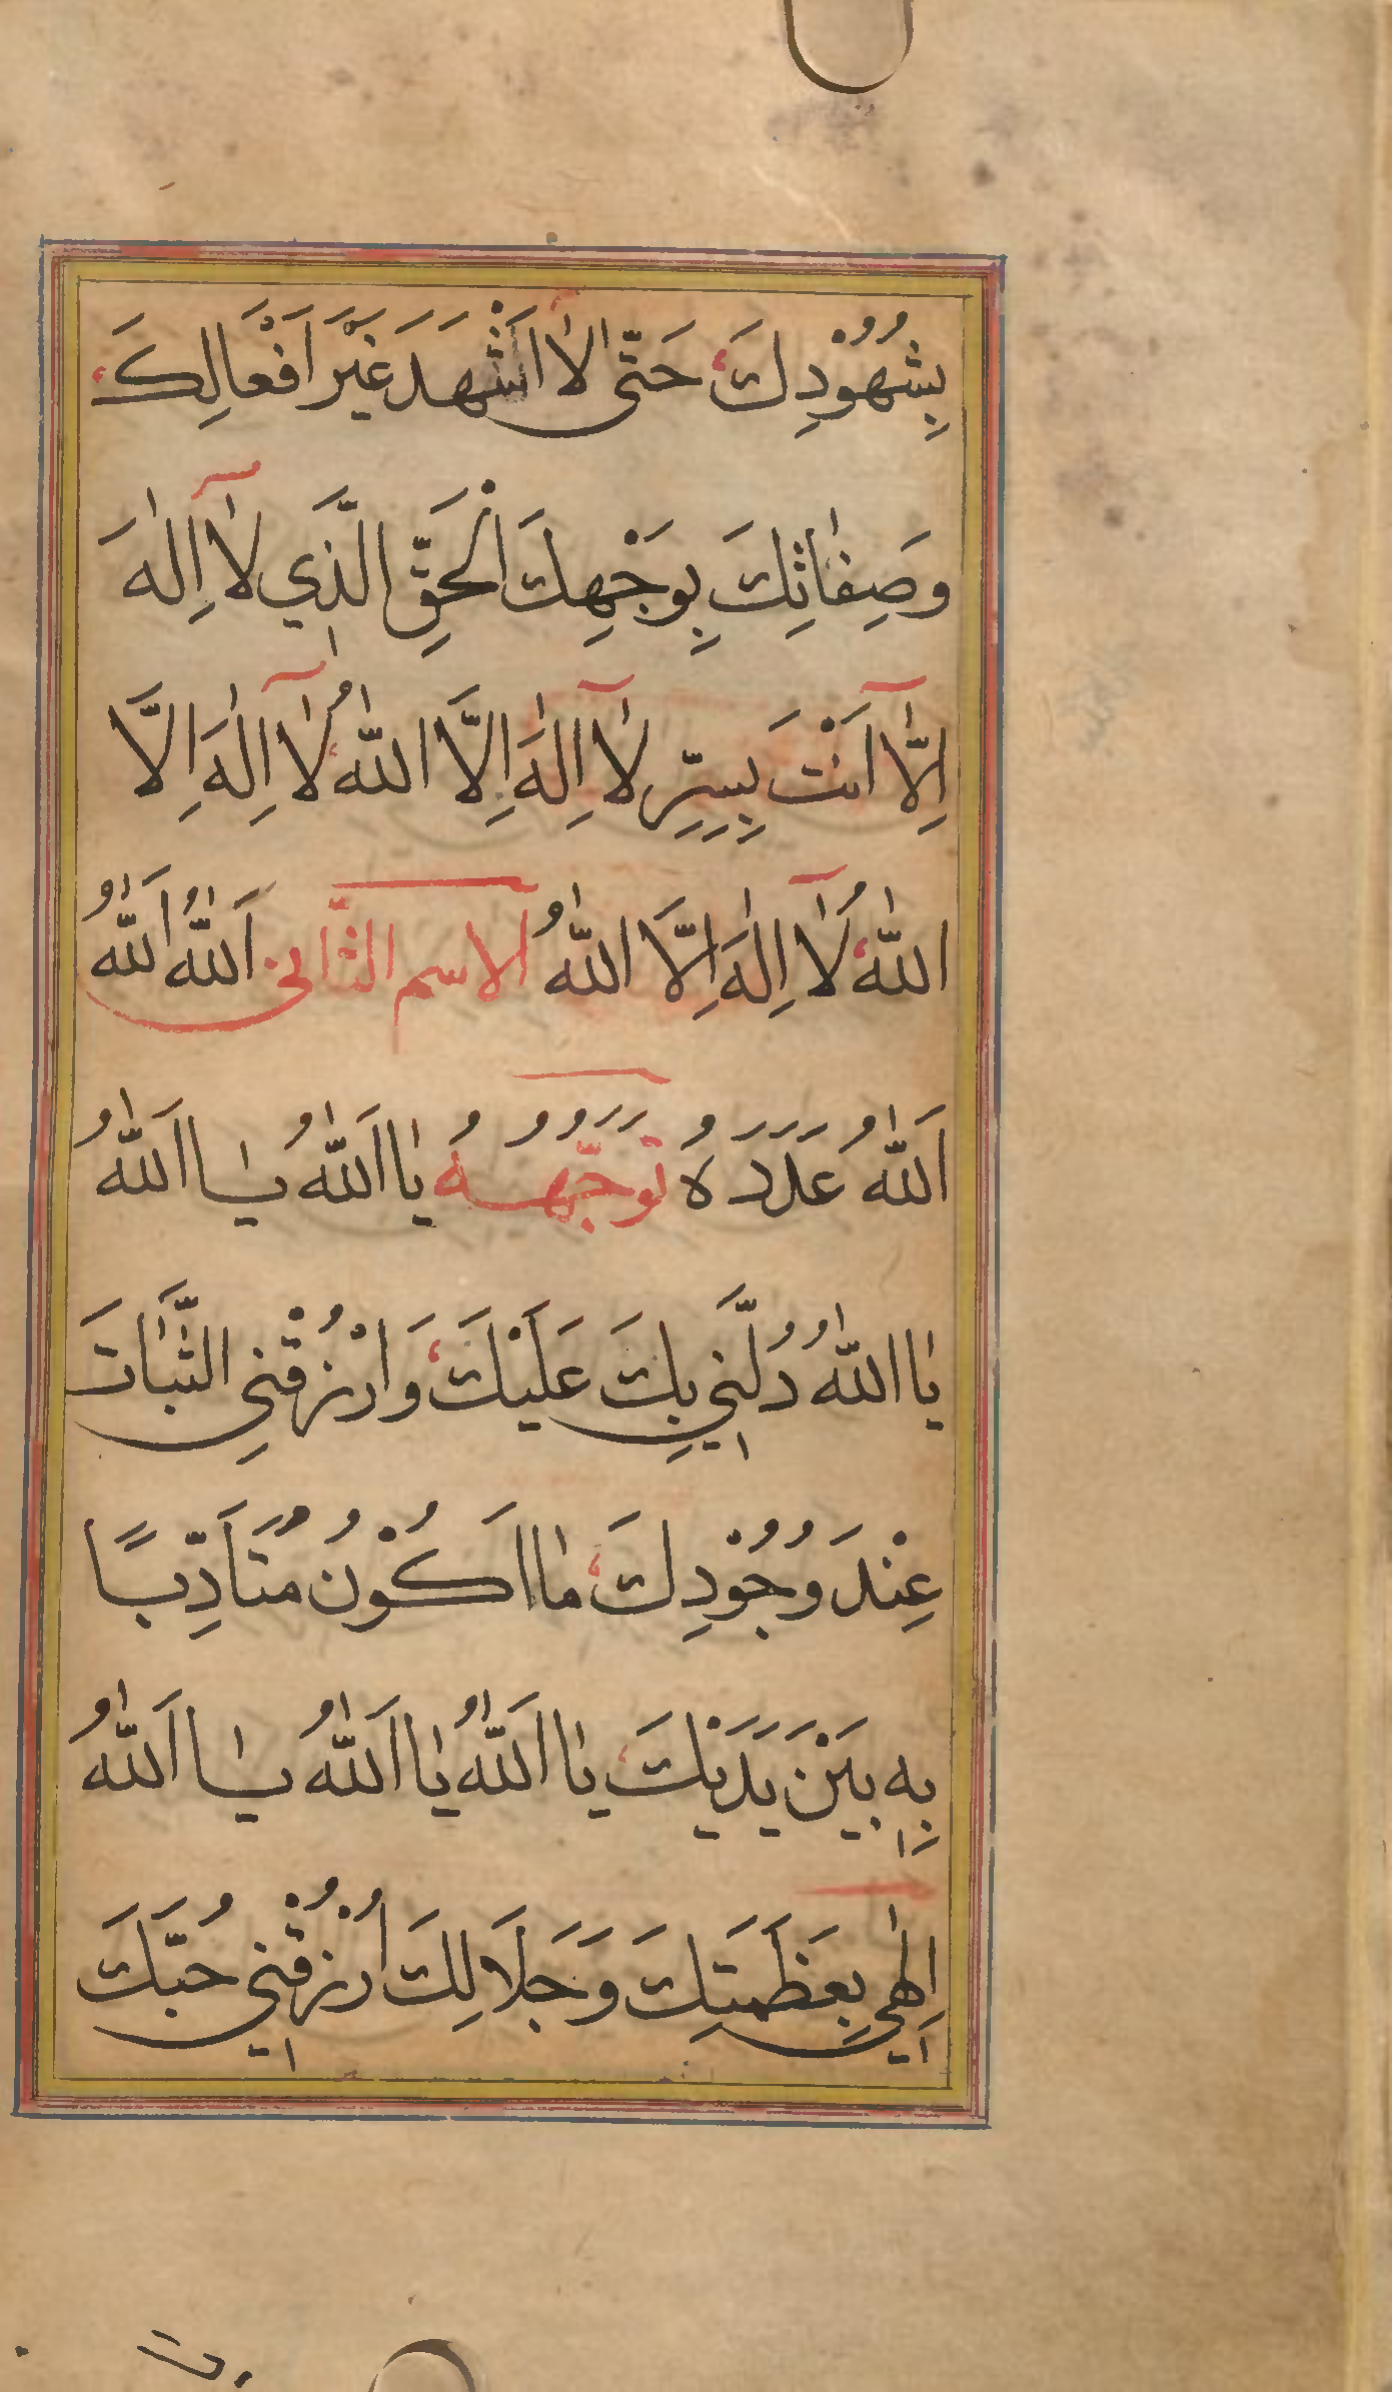 بِشُهُوْدِكَ، حَتّٰى لَآ اَشْهَدَ غَيْرَ اَفْعَالِكَ،
وَصِفٰاتِكَ بِوَجْهِكَ الْحَقِّ الَّذِي لٰآ اِلٰهَ
اِلّٰآ اَنْتَ بِسِرِّ لٰآ اِلٰهَ اِلَّا اللّٰهُ، لٰآ اِلٰهَ اِلَّا
اللّٰهُ، لٰآ اِلٰهَ اِلَّا اللّٰهُ الاسم الثَّانى اَللّٰهُ اَللّٰهُ
اَللّٰهُ عَدَدَهُ تَوَجُّهُهُ يٰا اَللّٰهُ يٰا اَللّٰهُ
يٰا اللّٰهُ دُلَّنِي بِكَ عَلَيْكَ، وَارْزُقْنِي الثَّبٰاتَ
عِنْدَ وُجُوْدِكَ، مٰا اَكُوْنُ مُتَاَدِّبًا
بِهِ بَيْنَ يَدَيْكَ، يٰا اَللّٰهُ يٰا اَللّٰهُ يٰا اَللّٰهُ
اِلٰهِي بِعَظَمَتِكَ وَجَلَالِكَ اُرْزُقْنِي حُبَّكَ